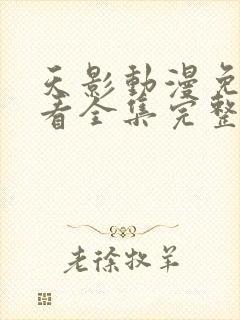 天影動漫免
看全集完整
老徐牧羊